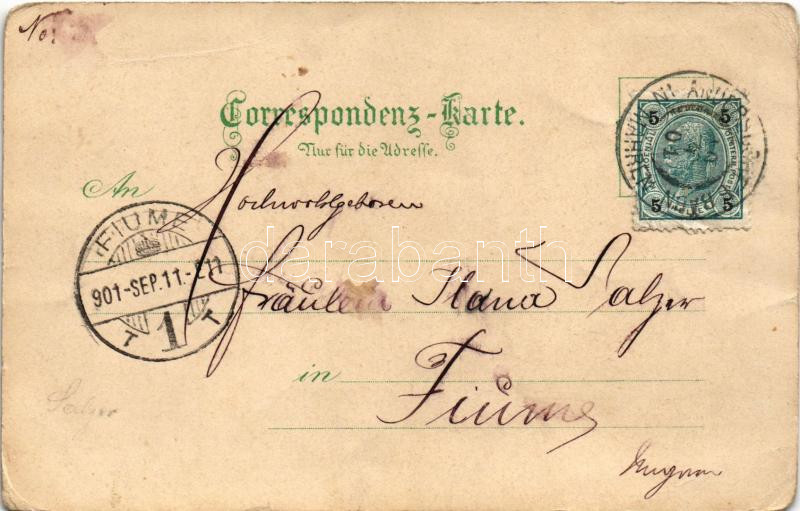 No:
Correspondenz-Karte.
Nur für die Adresse.
An
Hochwohlgeboren
Fräulein Ilana Salzer
in
Fiume
Salzer
FIUME
901-SEP.11.
T 1 T
5 5
5 5
darabanth